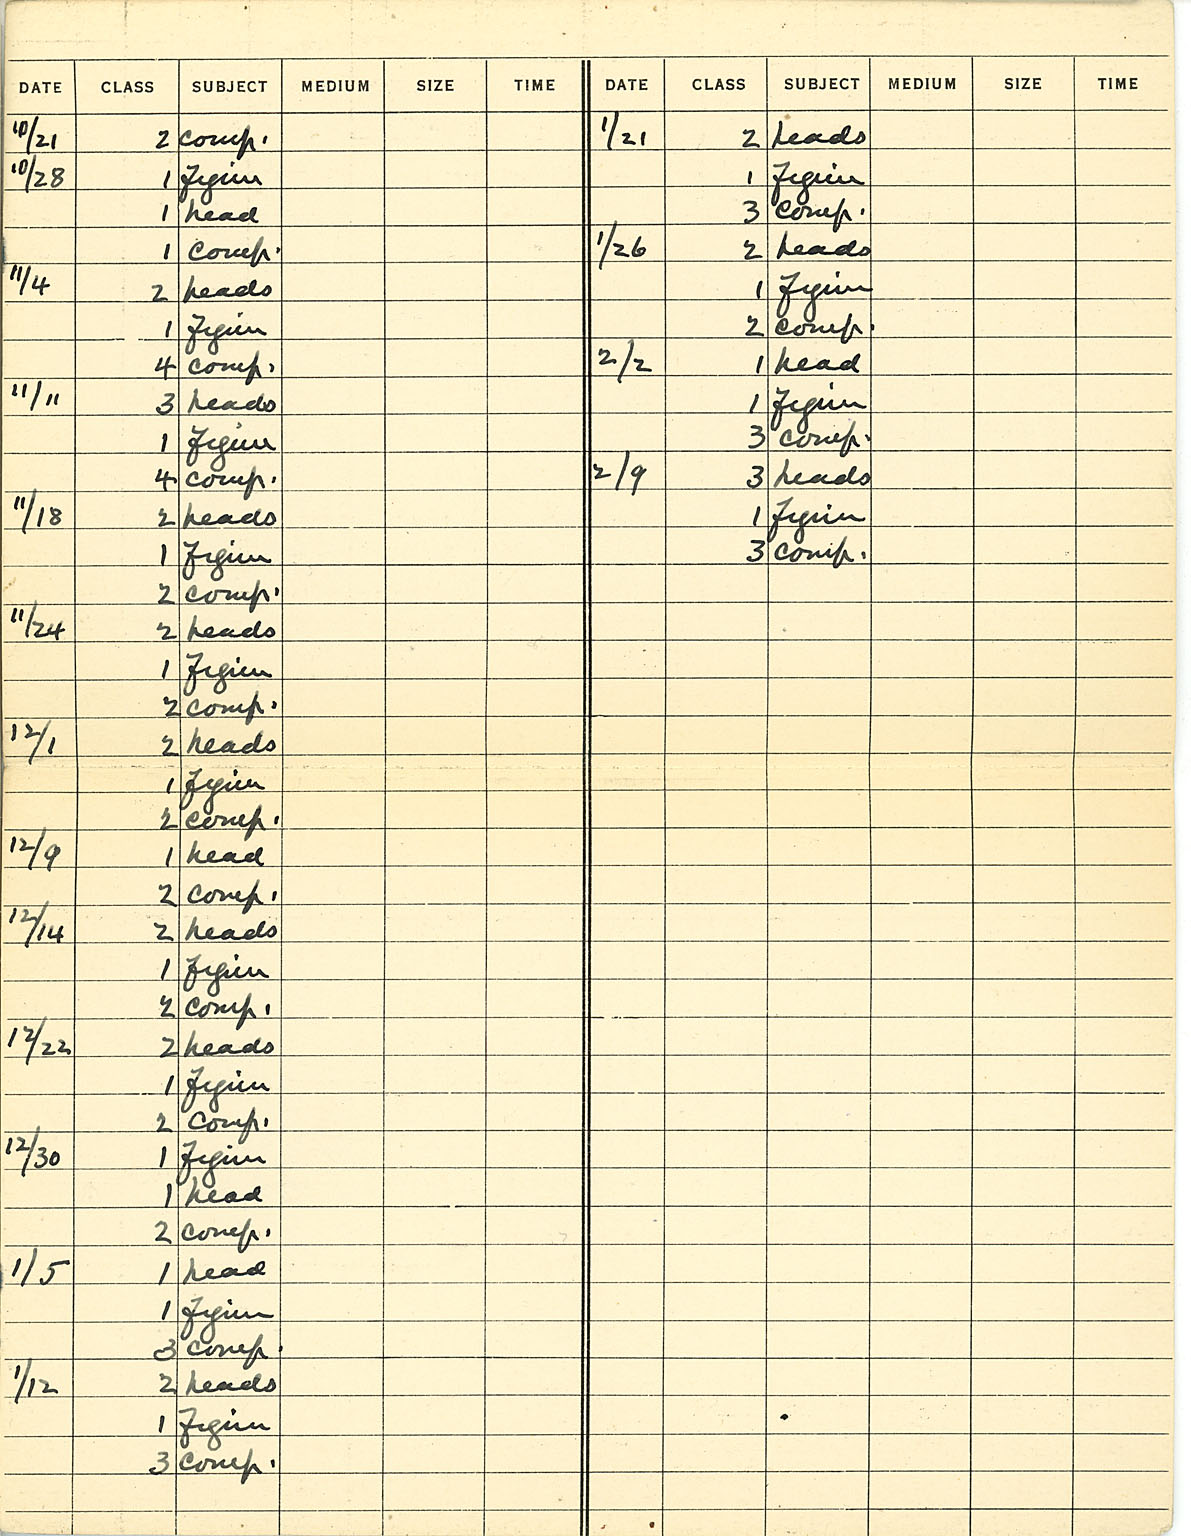 DATE CLASS SUBJECT MEDIUM SIZE TIME
10/21 2 comp.
10/28 1 figure
1 head
1 comp.
11/4 2 heads
1 figure
4 comp.
11/11 3 heads
1 figure
4 comp.
11/18 2 heads
1 figure
2 comp.
11/24 2 heads
1 figure
2 comp.
12/1 2 heads
1 figure
2 comp.
12/9 1 head
2 comp.
12/14 2 heads
1 figure
2 comp.
12/22 2 heads
1 figure
2 comp.
12/30 1 figure
1 head
2 comp.
1/5 1 head
1 figure
3 comp.
1/12 2 heads
1 figure
3 comp.
DATE CLASS SUBJECT MEDIUM SIZE TIME
1/21 2 heads
1 figure
3 comp.
1/26 2 heads
1 figure
2 comp.
2/2 1 head
1 figure
3 comp.
2/9 3 heads
1 figure
3 comp.